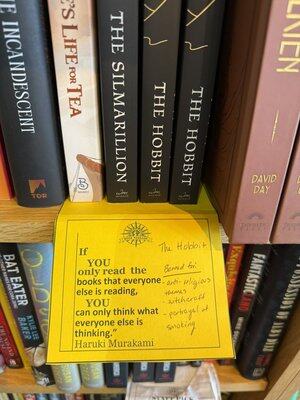 E INCANDESCENT
TOR
'S LIFE FOR TEA
THE SILMARILLION
THE HOBBIT
THE HOBBIT
DAVID
DAY
If
YOU
only read the
books that everyone
else is reading,
YOU
can only think what
everyone else is
thinking."
Haruki Murakami
The Hobbit
Banned for:
- anti-religious
themes
- witchcraft
- portrayal of
smoking
BAT EATER
KYLIE LEE
BAKER
FANTASTIC